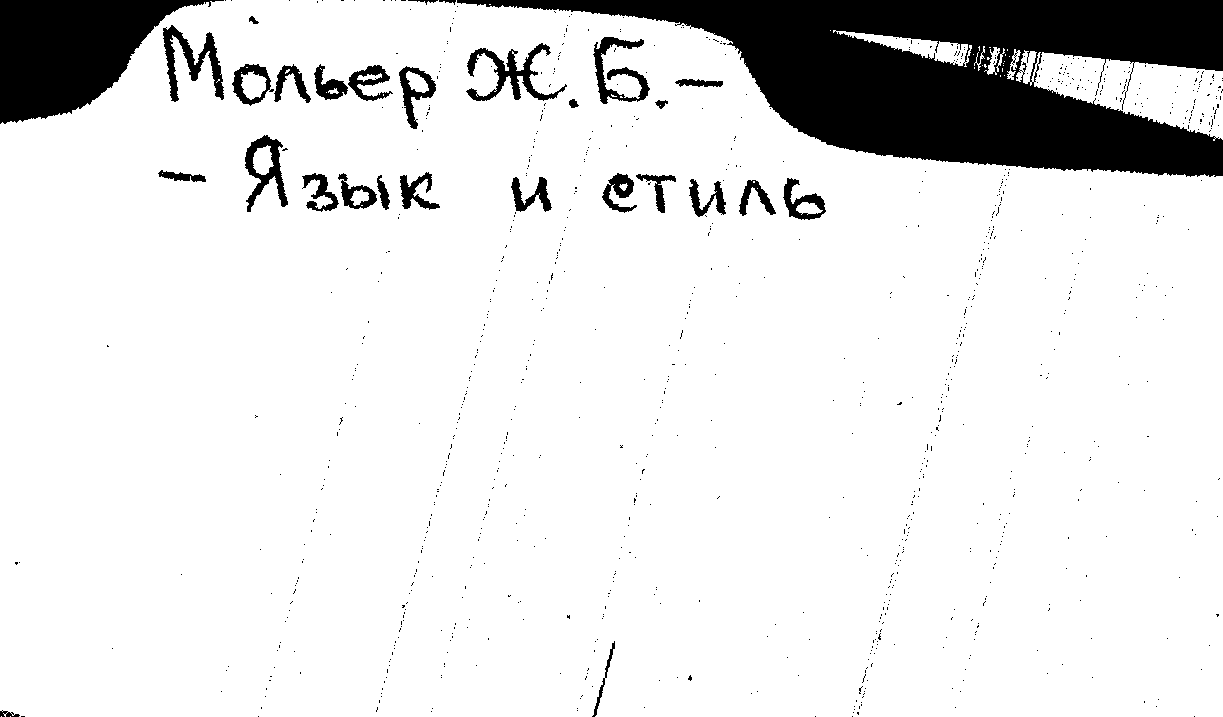 Мольер Ж.Б. –
– Язык и стиль